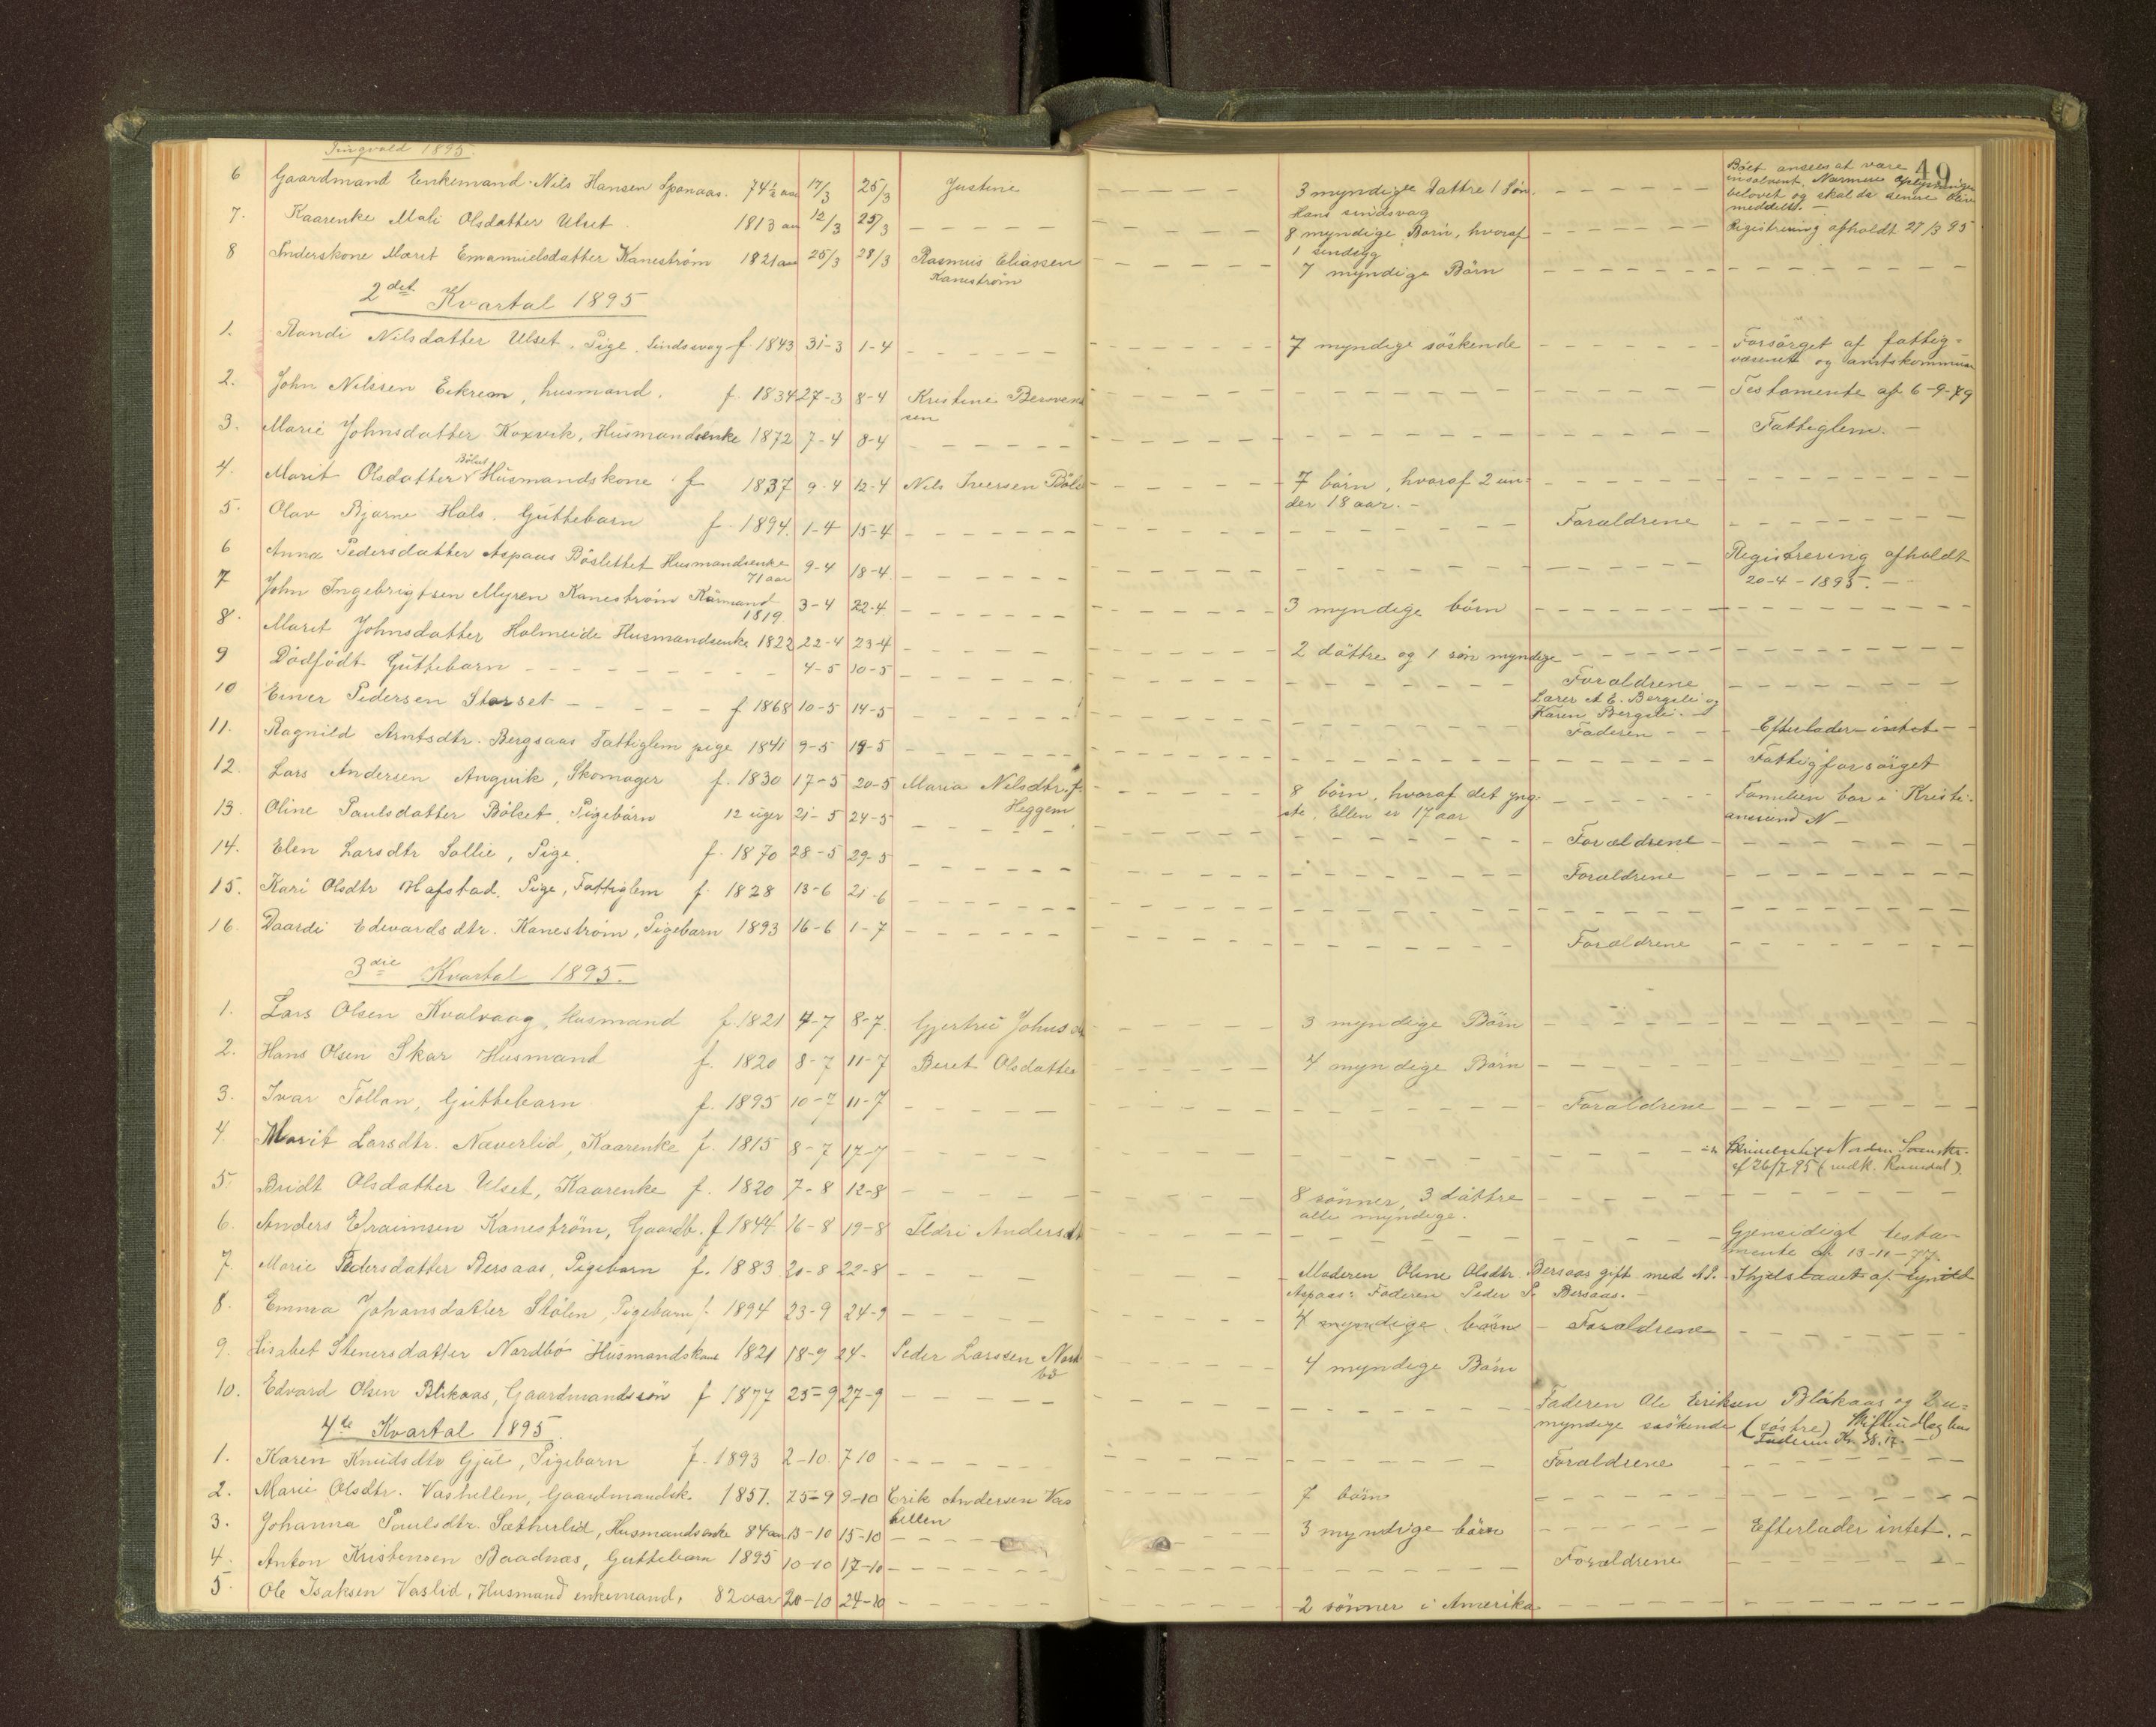 Tingvold 1895.
49
6 Gaardmand Enkemand Nils Hansen Spanaas. 74½ aar 17/3 25/3 Justine 3 myndige Døttre 1 Søn Boet ansees at være
Hans sindsvag insolvent. Nærmere Oplysninger
belovet og skal da senere blive
meddelt. —
7. Kaarenke Mali Olsdatter Ulset 1813 12/3 25/3 8 myndige Börn, hvoraf Registrering afholdt 27/3 95
1 sindsyg
8 Inderskone Marit Emanuelsdatter Kaneström 1821 25/3 28/3 Rasmus Eliassen 7 myndige Börn
Kaneström
2det Kvartal 1895
1. Randi Nilsdatter Ulset, Pige, Sindssvag f. 1843 31-3 1-4 7 myndige söskende Forsörget af fattig=
væsenet og amtskommunen
2. John Nilssen Eikrem, husmand. f. 1834 27-3 8-4 Kristine Testamente af 6-9-89
sen
3. Marie Johnsdatter Koxvik, Husmandsenke 1872 7-4 8-4 Fattiglem. —
4. Marit Olsdatter Bölset Husmandskone f 1837 9-4 12-4 Nils Iversen Böls 7 börn, hvoraf 2 un=
der 18 aar. -
5. Olav Bjarne Hals. Guttebarn f. 1894. 1-4 15-4 Forældrene
6 Anna Pedersdatter Aspaas Böslettet Husmandsenke 9-4 18-4 Registrering afholdt
71 aar 20-4-1895. —
7 John Ingebrigtsen Myren Kaneström Kårmand 3-4 22-4 3 myndige börn
1819
8. Marit Johnsdatter Holmeide Husmandsenke 1822 22-4 23-4 2 döttre og 1 sön myndige
9 Dödfödt Guttebarn 4-5 10-5 Forældrene
10 Einer Pedersen Storset f 1868 10-5 14-5 Lærer A. E. Bergeli og
Karen Bergeli. Efterlader intet —
11. Ragnild Arntsdtr. Bergsaas Fattiglem pige 1841 9-5 19-5 Faderen Fattigforsörget
12. Lars Andersen Angvik, Skomager f. 1830 17-5 20-5 Maria Nilsdtr. f. 8 börn, hvoraf det yng= Familien bor i Kristi-
Heggem ste, Ellen er 17 aar ansund N —
13. Oline Paulsdatter Bölset, Pigebarn 12 uger 21-5 24-5 Forældrene
14. Elen Larsdtr Sollie, Pige. f. 1870 28-5 29-5 Forældrene
15. Kari Olsdtr Hafstad, Pige, Fattiglem f. 1828 13-6 21-6
16. Daardi Edwardsdtr. Kaneström, Pigebarn 1893 16-6 1-7 Forældrene
3die Kvartal 1895.
1. Lars Olsen Kvalvaag, Husmand f. 1821 4-7 8-7 Gjertrü Johns 3 myndige Börn
2. Hans Olsen Skar Husmand f. 1820 8-7 11-7 Beret Olsdatter 4 myndige Börn
3. Ivar Tollan, Guttebarn f. 1895 10-7 11-7 Forældrene
4. Marit Larsdtr. Næverlid, Kaarenke f. 1815 8-7 17-7 Norden
af 26/7 95 (indk. Romsdal)
5. Bridt Olsdatter Ulset, Kaarenke f. 1820 7-8 12-8 8 sönner, 3 döttre
alle myndige.
6. Anders Efraimsen Kaneström, Gaardb. f 1844 16-8 19-8 Ildri Andersdt Gjensidigt testa-
mente af 13-11-77.
7. Marie Pedersdatter Bersaas, Pigebarn f. 1883 20-8 22-8 Moderen Oline Olsdtr. Bersaas gift med A. P.
Aspaas: Faderen Peder P. Bersaas. —
8. Emma Johansdatter Stölen, Pigebarn f. 1894 23-9 24-9 4 myndige börn - Forældrene
9. Lisabet Stenersdatter Nordbö Husmandskone 1821 18-9 24- Peder Larssen Nord 4 myndige Börn
bö
10. Edvard Olsen Blikaas, Gaardmandssön f 1877 25-9 27-9 Faderen Ole Eriksen Blikaas og 2 u=
myndige söskende (söstre) Skifteudlæg hos
Faderen Kr. 38.17
4de Kvartal 1895.
1. Karen Knudsdtr Gjul, Pigebarn f. 1893 2-10 7-10 Forældrene
2. Marie Olsdtr. Vashellen, Gaardmandsk. 1857. 25-9 9-10 Erik Andersen Vas 7 börn
hellen
3. Johanna Paulsdtr. Sætherlid, Husmandsenke 84 aar 13-10 15-10 3 myndige börn Efterlader intet. —
4. Anton Kristensen Baadnæs, Guttebarn 1895 10-10 17-10 Forældrene
5. Ole Isaksen Vaslid, Husmand enkemand. 82 aar 20-10 24-10 2 sönner i Amerika